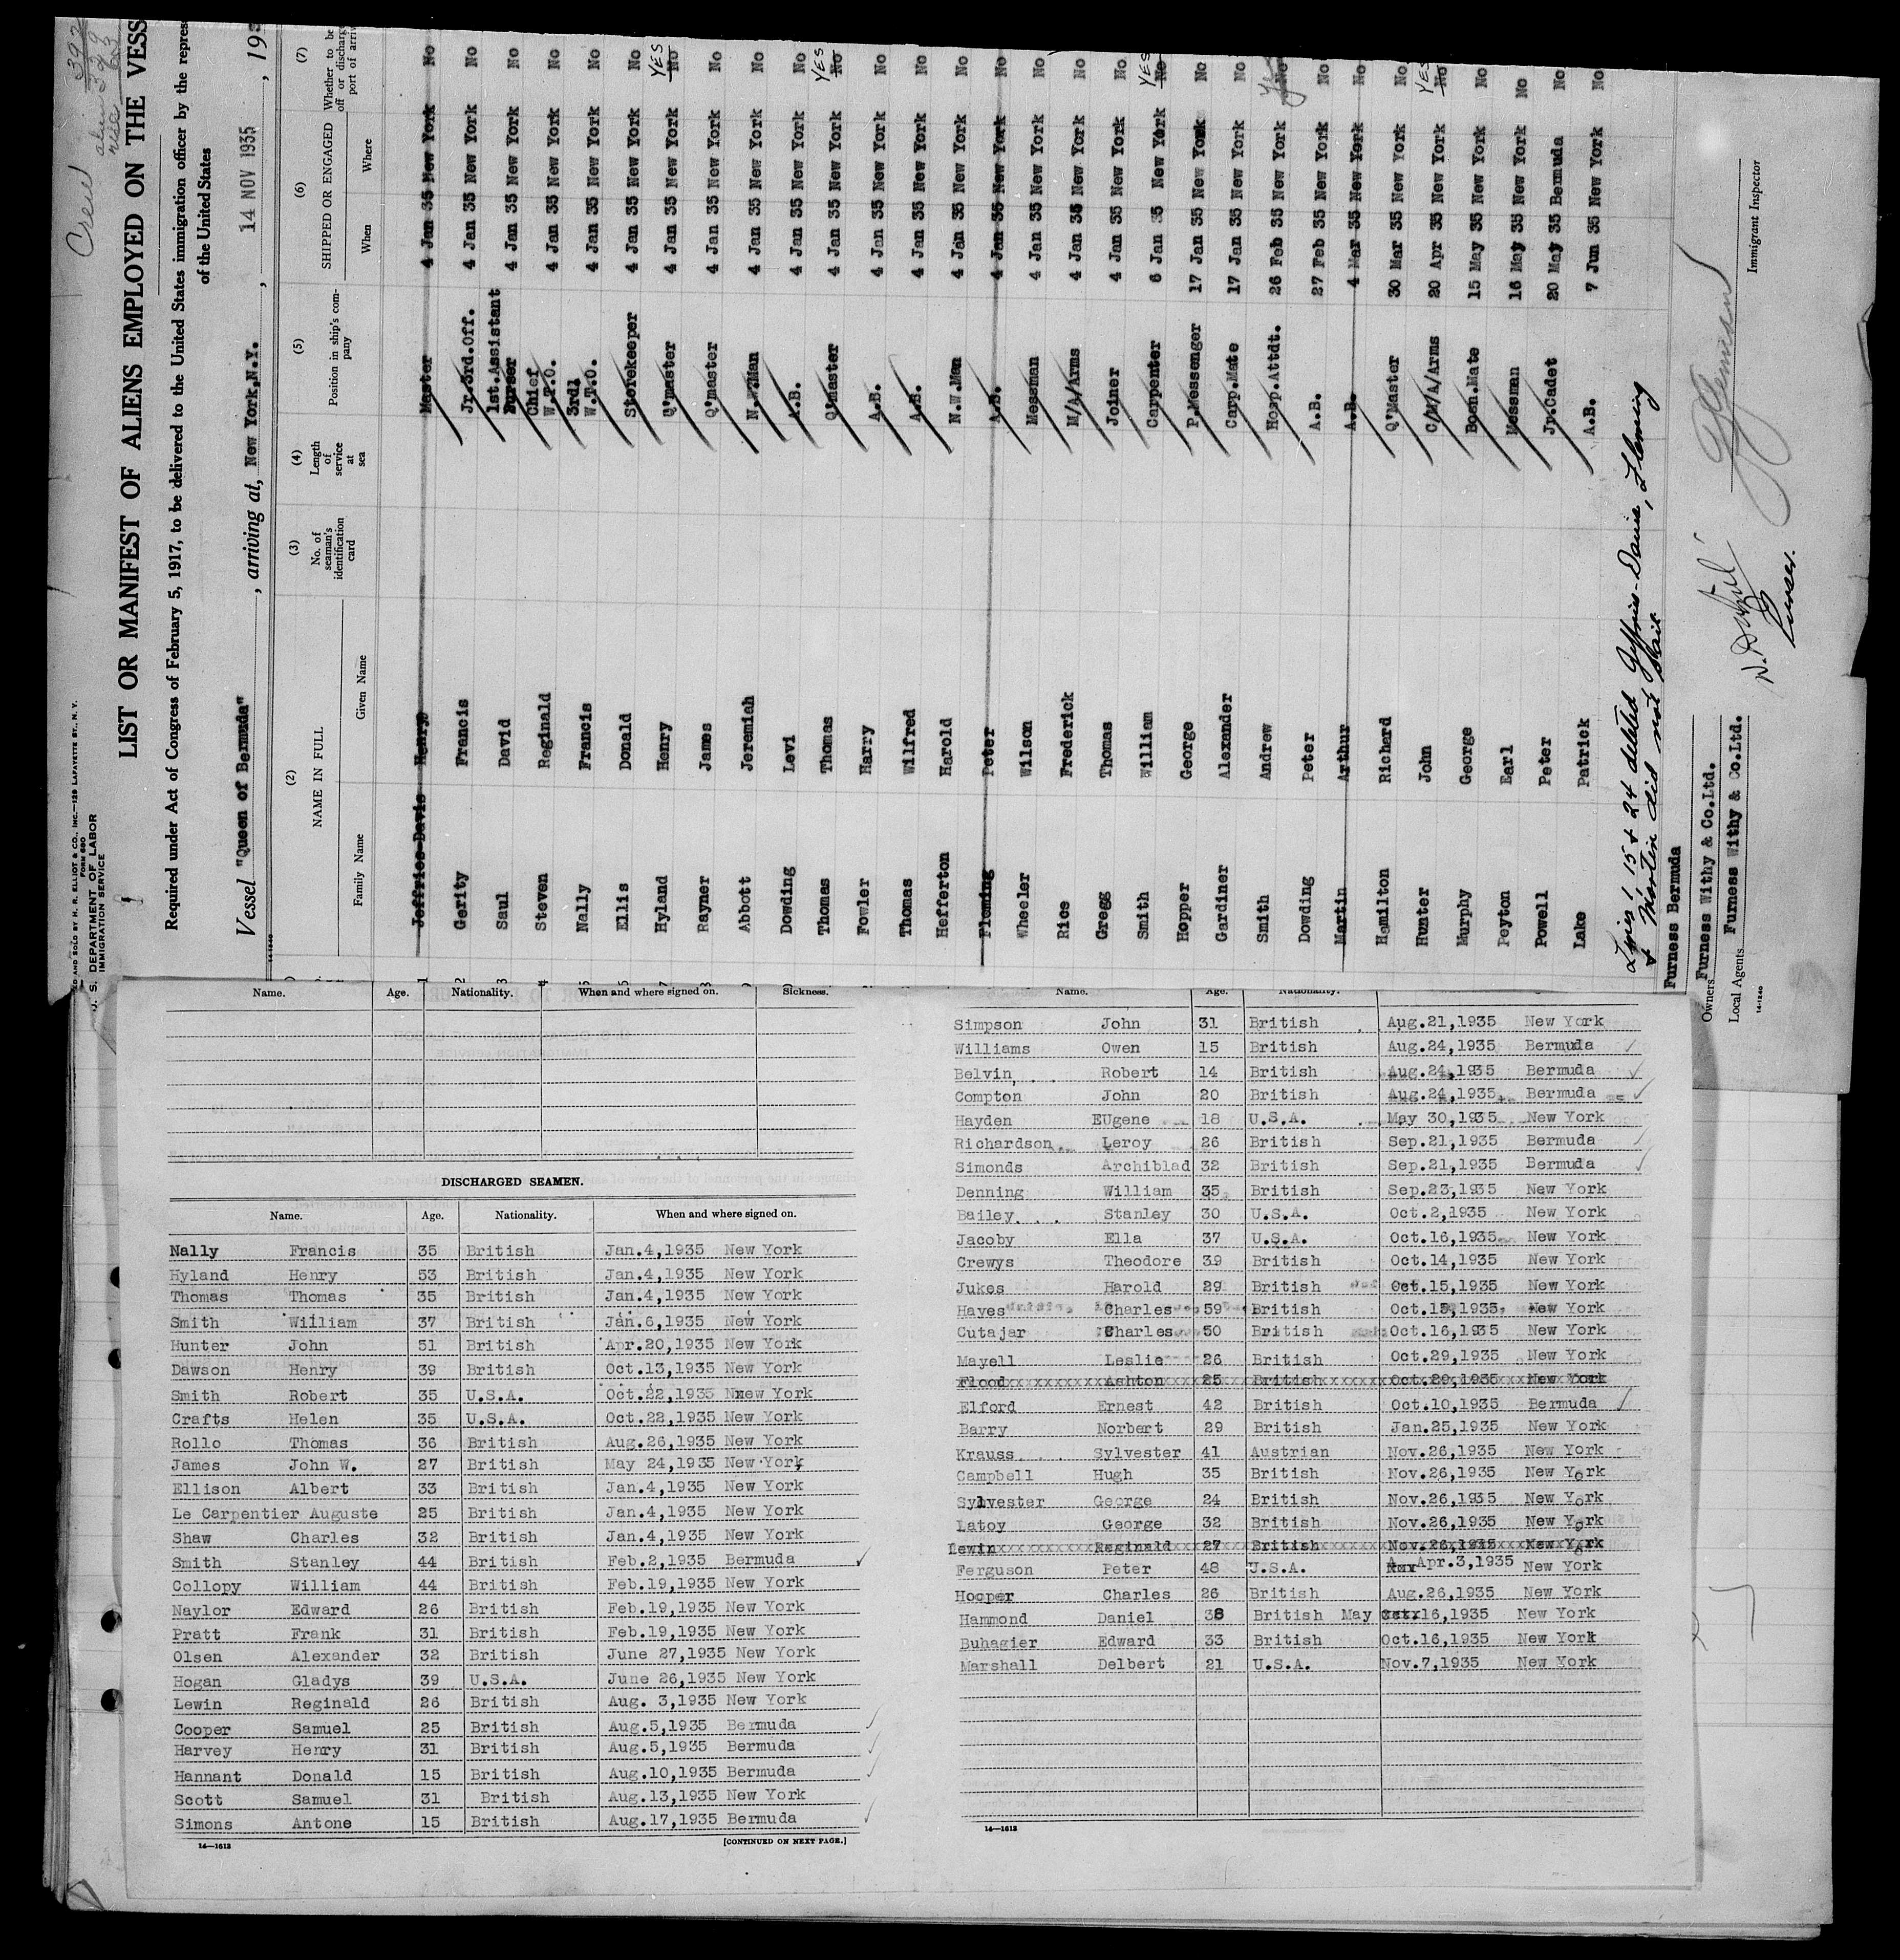 Crew
392
alien 329
rise 63
ED AND SOLD BY H. R. ELLIOT & CO., INC.—129 LAFAYETTE ST., N. Y.
FORM 680
U. S. DEPARTMENT OF LABOR
IMMIGRATION SERVICE
LIST OR MANIFEST OF ALIENS EMPLOYED ON THE VESS
Required under Act of Congress of February 5, 1917, to be delivered to the United States immigration officer by the repres
of the United States
Vessel "Queen of Bermuda" , arriving at, New York,N.Y. , 14 NOV 1935 , 193
14-1240
(2) (3) (4) (5) (6) (7)
NAME IN FULL No. of seaman's identification card Length of service at sea Position in ship's company SHIPPED OR ENGAGED Whether to be off or discharg port of arriv
Family Name Given Name When Where
1 Jeffries-Davis Henry Master 4 Jan 35 New York No
2 Gerity Francis Jr.3rd.Off. 4 Jan 35 New York No
3 Saul David 1st.Assistant Purser 4 Jan 35 New York No
4 Steven Reginald Chief W.T.O. 4 Jan 35 New York No
5 Nally Francis 3rd1 W.T.O. 4 Jan 35 New York No
6 Ellis Donald Storekeeper 4 Jan 35 New York No
7 Hyland Henry Q'master 4 Jan 35 New York No YES
8 Rayner James Q'master 4 Jan 35 New York No
9 Abbott Jeremiah N.W.Man 4 Jan 35 New York No
Dowding Levi A.B. 4 Jan 35 New York No
Thomas Thomas Q'master 4 Jan 35 New York No YES
Fowler Harry A.B. 4 Jan 35 New York No
Thomas Wilfred A.B. 4 Jan 35 New York No
Hefferton Harold N.W.Man 4 Jan 35 New York No
Fleming Peter A.B. 4 Jan 35 New York No
Wheeler Wilson Messman 4 Jan 35 New York No
Rice Frederick M/A/Arms 4 Jan 35 New York No
Gregg Thomas Joiner 4 Jan 35 New York No
Smith William Carpenter 6 Jan 35 New York No YES
Hopper George P.Messenger 17 Jan 35 New York No
Gardiner Alexander Carp.Mate 17 Jan 35 New York No
Smith Andrew Hosp.Attdt. 26 Feb 35 New York No Yes
Dowding Peter A.B. 27 Feb 35 New York No
Martin Arthur A.B. 4 Mar 35 New York No
Hamilton Richard Q'Master 30 Mar 35 New York No
Hunter John C/M/A/Arms 20 Apr 35 New York No YES
Murphy George Bosn.Mate 15 May 35 New York No
Peyton Earl Messman 16 May 35 New York No
Powell Peter Jr.Cadet 20 May 35 Bermuda No
Lake Patrick A.B. 7 Jun 35 New York No
Lines 1, 15 & 24 deleted Jeffries-Davis, Fleming
& Martin did not sail
Furness Bermuda
Owners Furness Withy & Co.Ltd.
Local Agents Furness Withy & Co.Ltd.
14-1240
Purser.
Immigrant Inspector
Name. Age. Nationality. When and where signed on. Sickness.
DISCHARGED SEAMEN.
Name. Age. Nationality. When and where signed on.
Nally Francis 35 British Jan.4,1935 New York
Hyland Henry 53 British Jan.4,1935 New York
Thomas Thomas 35 British Jan.4,1935 New York
Smith William 37 British Jan.6,1935 New York
Hunter John 51 British Apr.20,1935 New York
Dawson Henry 39 British Oct.13,1935 New York
Smith Robert 35 U.S.A. Oct.22,1935 Nxew York
Crafts Helen 35 U.S.A. Oct.22,1935 New York
Rollo Thomas 36 British Aug.26,1935 New York
James John W. 27 British May 24,1935 New York
Ellison Albert 33 British Jan.4,1935 New York
Le Carpentier Auguste 25 British Jan.4,1935 New York
Shaw Charles 32 British Jan.4,1935 New York
Smith Stanley 44 British Feb.2,1935 Bermuda ✓
Collopy William 44 British Feb.19,1935 New York
Naylor Edward 26 British Feb.19,1935 New York
Pratt Frank 31 British Feb.19,1935 New York
Olsen Alexander 32 British June 27,1935 New York
Hogan Gladys 39 U.S.A. June 26,1935 New York
Lewin Reginald 26 British Aug. 3,1935 New York
Cooper Samuel 25 British Aug.5,1935 Bermuda ✓
Harvey Henry 31 British Aug.5,1935 Bermuda ✓
Hannant Donald 15 British Aug.10,1935 Bermuda ✓
Scott Samuel 31 British Aug.13,1935 New York
Simons Antone 15 British Aug.17,1935 Bermuda ✓
14—1613 [CONTINUED ON NEXT PAGE.]
Name. Age. Nationality.
Simpson John 31 British Aug.21,1935 New York
Williams Owen 15 British Aug.24,1935 Bermuda ✓
Belvin Robert 14 British Aug.24,1935 Bermuda ✓
Compton John 20 British Aug.24,1935 Bermuda ✓
Hayden EUgene 18 U.S.A. May 30,1935 New York
Richardson Leroy 26 British Sep.21,1935 Bermuda ✓
Simonds Archiblad 32 British Sep.21,1935 Bermuda ✓
Denning William 35 British Sep.23,1935 New York
Bailey Stanley 30 U.S.A. Oct.2,1935 New York
Jacoby Ella 37 U.S.A. Oct.16,1935 New York
Crewys Theodore 39 British Oct.14,1935 New York
Jukes Harold 29 British Oct.15,1935 New York
Hayes Charles 59 British Oct.15,1935 New York
Cutajar Charles 50 British Oct.16,1935 New York
Mayell Leslie 26 British Oct.29,1935 New York
Flood Ashton 25 British Oct.29,1935 New York
Elford Ernest 42 British Oct.10,1935 Bermuda ✓
Barry Norbert 29 British Jan.25,1935 New York
Krauss Sylvester 41 Austrian Nov.26,1935 New York
Campbell Hugh 35 British Nov.26,1935 New York
Sylvester George 24 British Nov.26,1935 New York
Latoy George 32 British Nov.26,1935 New York
Lewin Reginald 27 British Nov.26,1935 New York
Ferguson Peter 48 U.S.A. Apr.3,1935 New York
Hooper Charles 26 British Aug.26,1935 New York
Hammond Daniel 38 British May 16,1935 New York
Buhagier Edward 33 British Oct.16,1935 New York
Marshall Delbert 21 U.S.A. Nov.7,1935 New York
14—1613